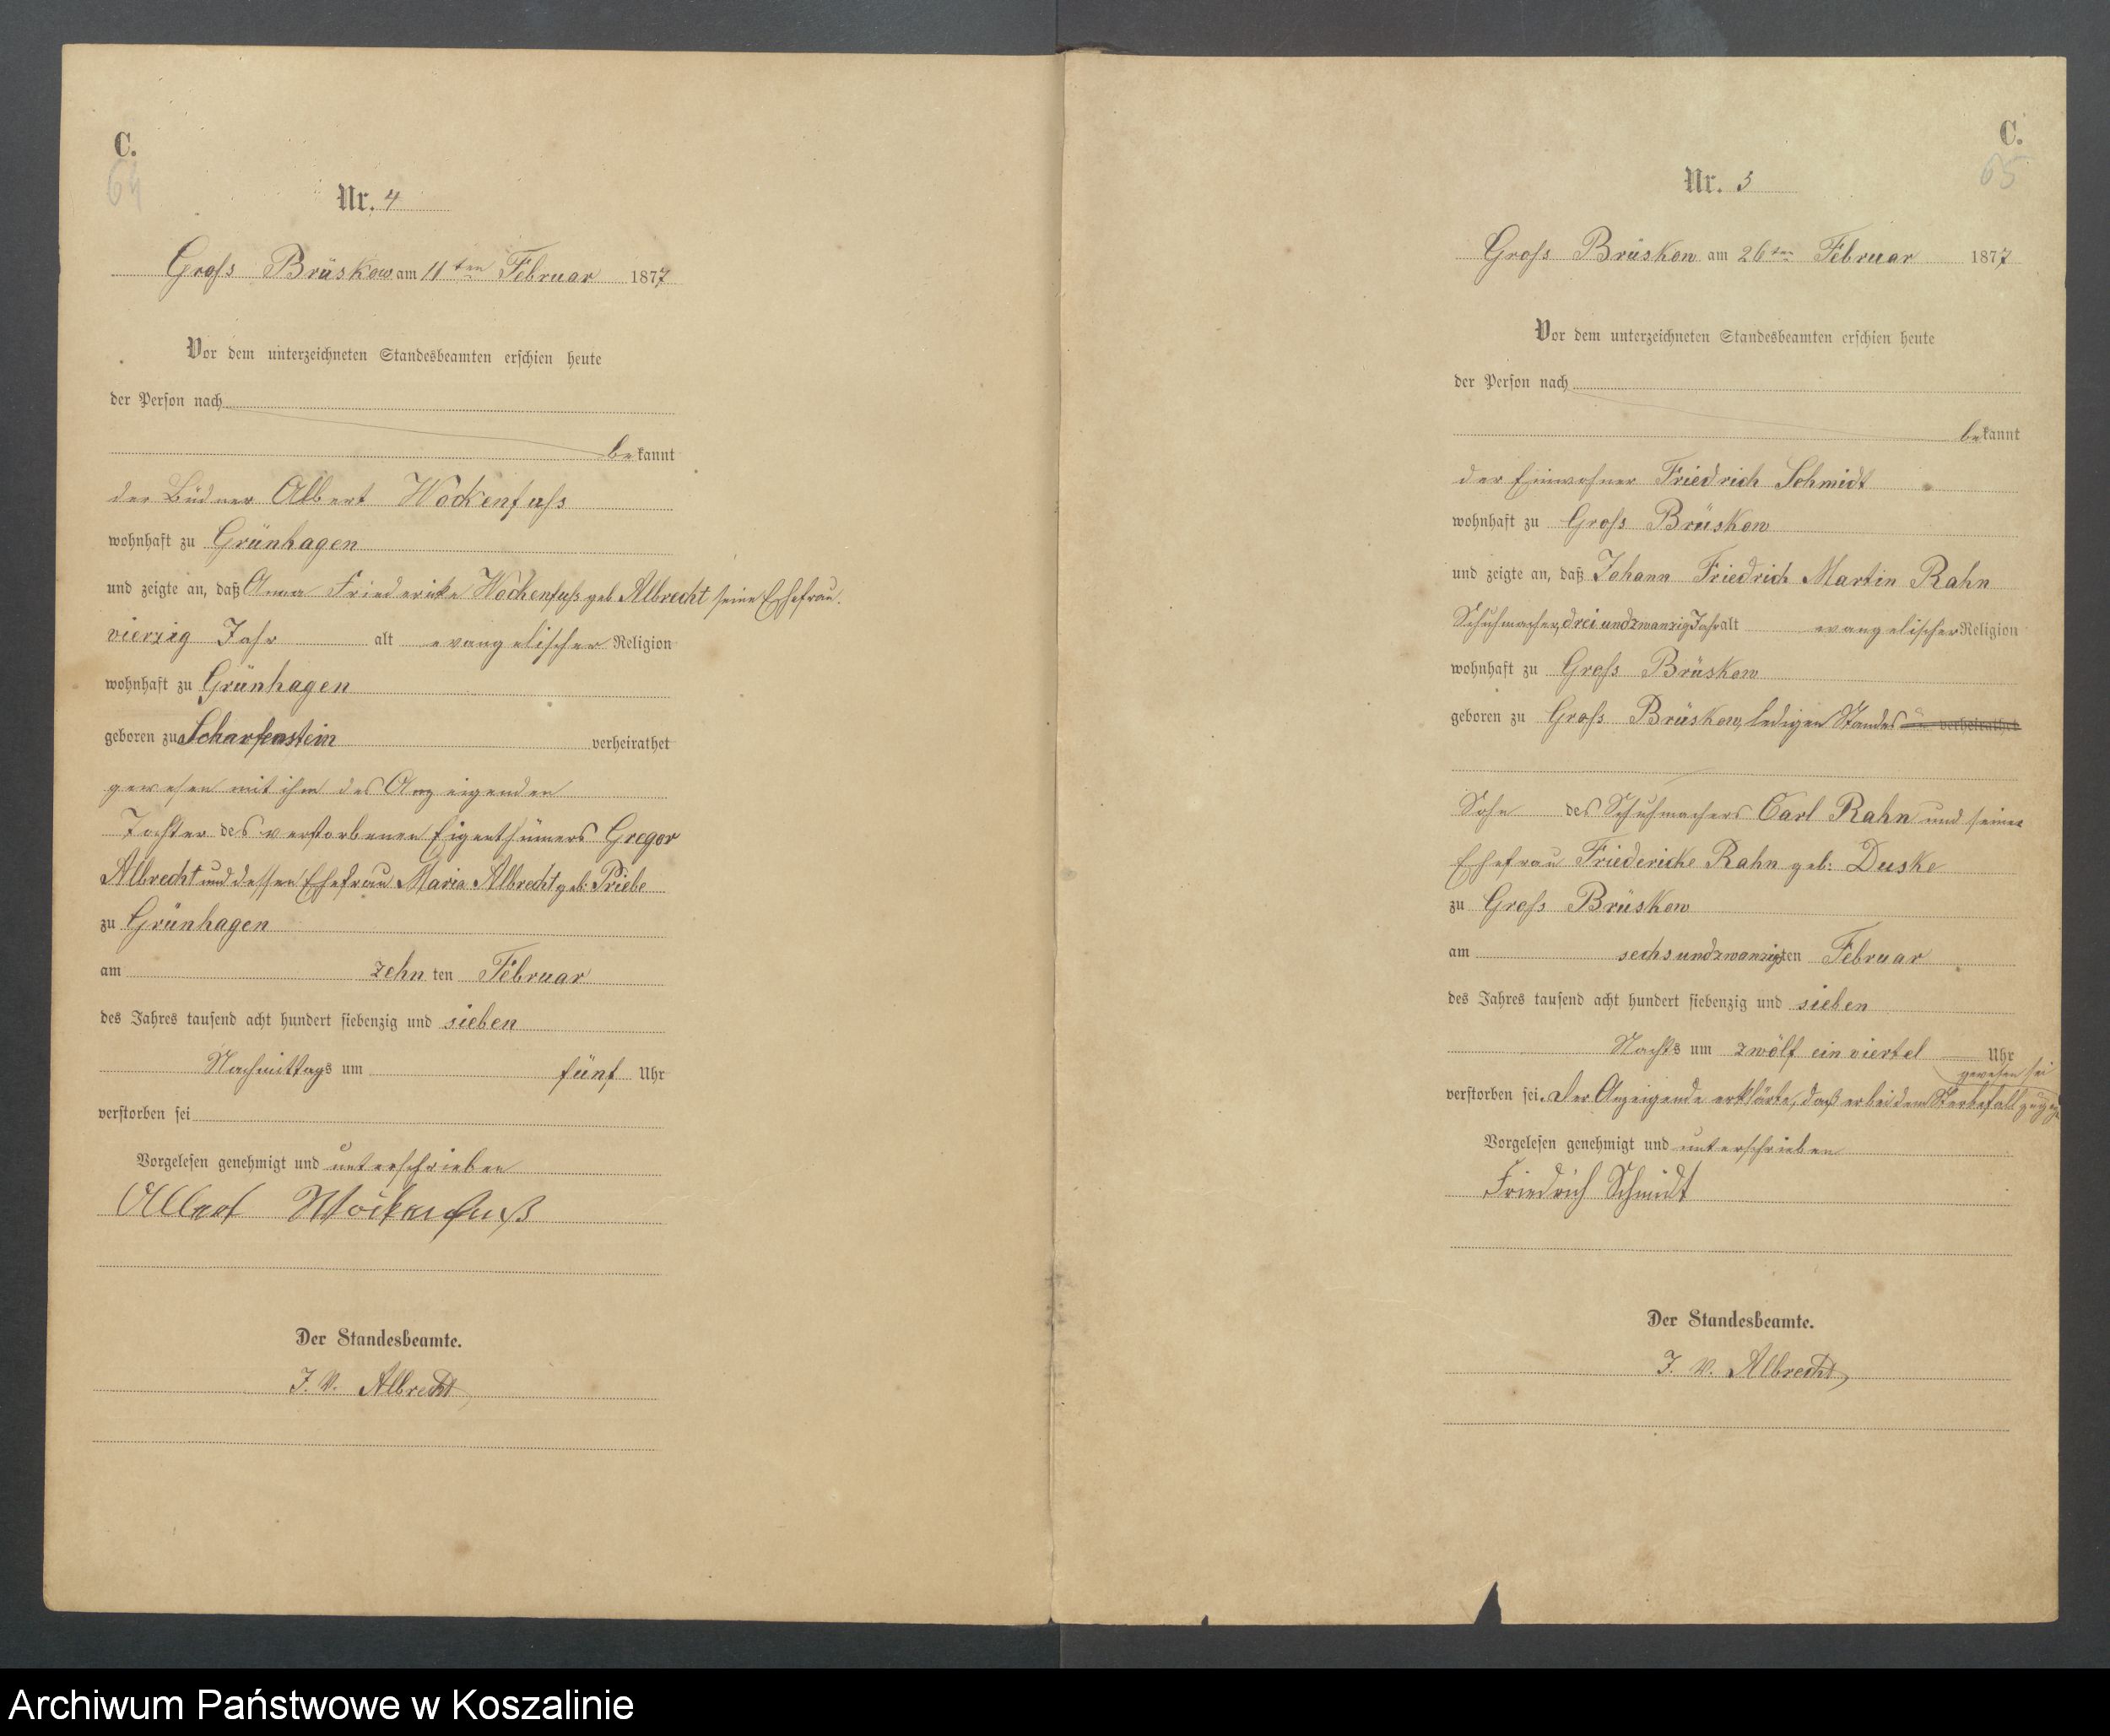 C.
64
Nr. 4
Groß Brüskow am 11ten Februar 1877
Vor dem unterzeichneten Standesbeamten erschien heute
der Person nach
bekannt
der Büdner Albert Wockenfuß
wohnhaft zu Grünhagen
und zeigte an, daß Anna Friedericke Wockenfuß geb Albrecht seine Ehefrau.
vierzig Jahr alt evangelischer Religion
wohnhaft zu Grünhagen
geboren zu Scharfenstein verheirathet
gewesen mit ihm des Anzeigenden
Tochter des verstorbenen Eigenthümers Gregor
Albrecht und dessen Ehefrau Maria Albrecht geb: Priebe
zu Grünhagen
am zehnten Februar
des Jahres tausend acht hundert siebenzig und sieben
Nachmittags um fünf Uhr
verstorben sei
Vorgelesen genehmigt und unterschrieben
Albert Wockenfuß
Der Standesbeamte.
J. V. Albrecht
C.
65
Nr. 5
Groß Brüskow am 26ten Februar 1877
Vor dem unterzeichneten Standesbeamten erschien heute
der Person nach
bekannt
der Einwohner Friedrich Schmidt
wohnhaft zu Groß Brüskow
und zeigte an, daß Johann Friedrich Martin Rahn
Schuhmacher, drei und zwanzig Jahr alt evangelischer Religion
wohnhaft zu Groß Brüskow
geboren zu Groß Brüskow, ledigen Standes verheirathet
Sohn des Schuhmachers Carl Rahn und seiner
Ehefrau Friedericke Rahn geb: Duske
zu Groß Brüskow
am sechs und zwanzigsten Februar
des Jahres tausend acht hundert siebenzig und sieben
Nachts um zwölf ein viertel Uhr
gewesen sei
verstorben sei. Der Anzeigende erklärte, daß er bei dem Sterbefall zugegen
Vorgelesen genehmigt und unterschrieben
Friedrich Schmidt
Der Standesbeamte.
J. V. Albrecht
Archiwum Państwowe w Koszalinie